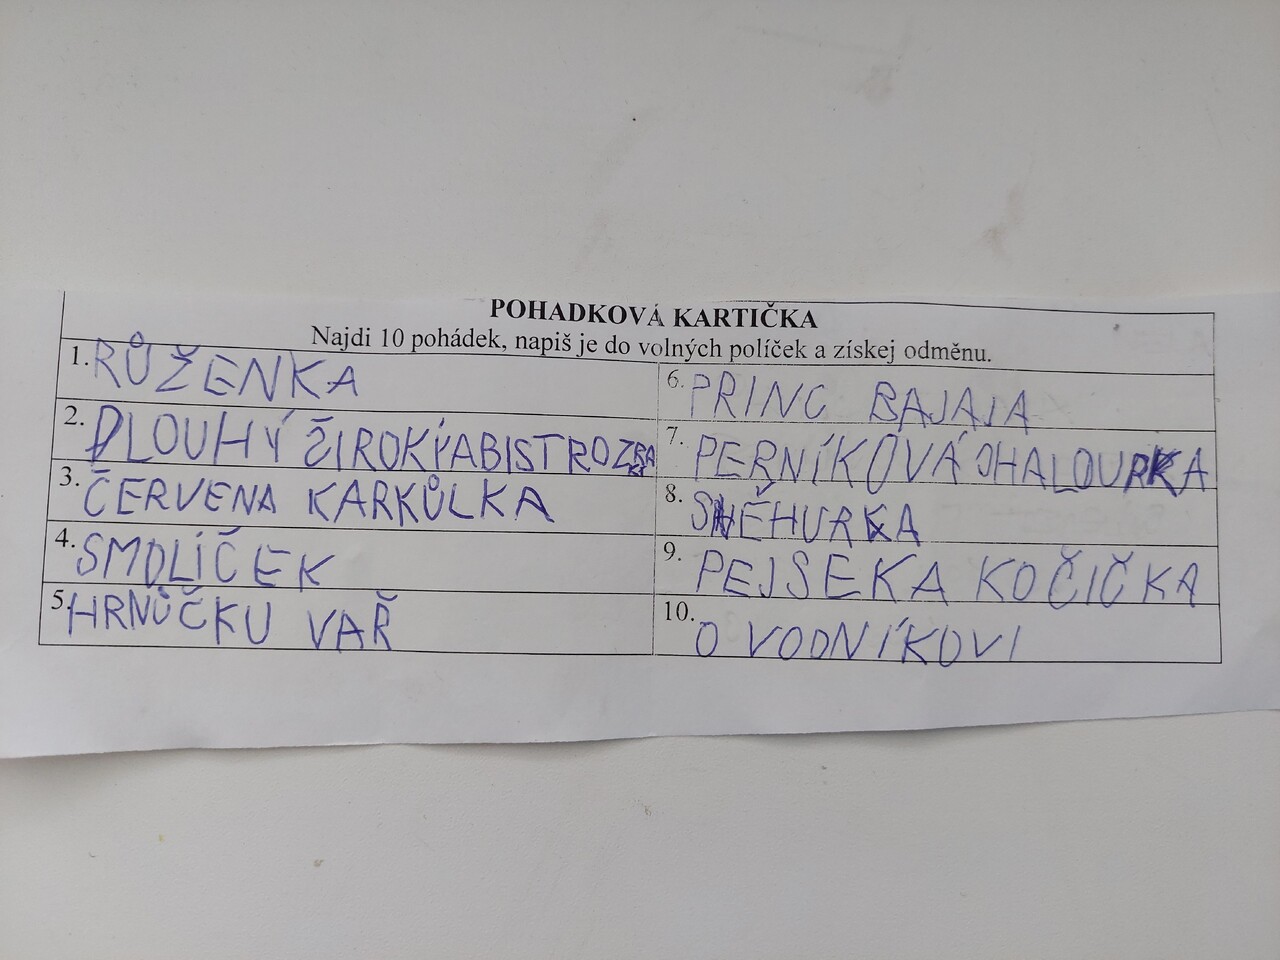 POHADKOVÁ KARTIČKA
Najdi 10 pohádek, napiš je do volných políček a získej odměnu.
1. RŮŽENKA
2. DLOUHÝ ŠIROKÝABISTROZRA
KI
3. ČERVENA KARKŮLKA
4. SMOLÍČEK
5. HRNŮČKU VAŘ
6. PRINC BAJAJA
7. PERNÍKOVÁ CHALOURKA
8. SNĚHURKA
9. PEJSEKA KOČIČKA
10. O VODNÍKOVI